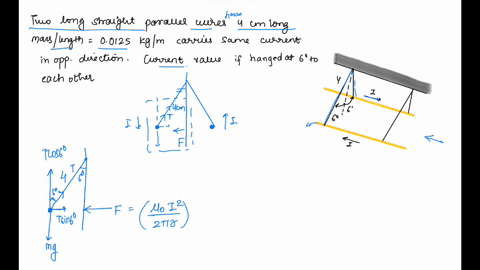 Two long straight parallel wires have 4 cm long
mass/length = 0.0125 kg/m carries same current
in opp. direction. Current value if hanged at 6° to
each other
4cm
T
I
I
F
4
6°
6°
I
I
Tcos6°
T
4
6°
6°
Tsin6°
mg
F = (μ₀ I² / 2πr)